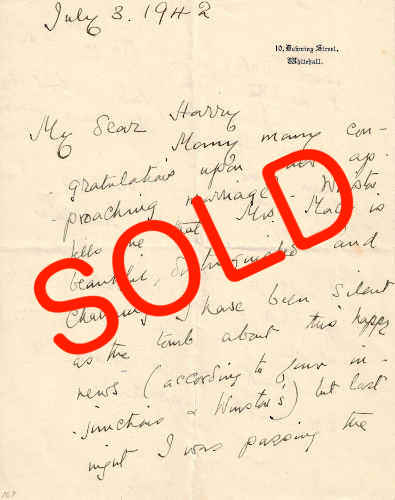 July 3. 1942
10, Downing Street,
Whitehall.
My Dear Harry
Many many con-
gratulations upon your ap-
proaching marriage. Winston
tells me that Miss Macy is
beautiful, distinguished and
charming. I have been silent
as the tomb about this happy
news (according to your in-
junctions & Winston's) but last
night I was passing the
SOLD